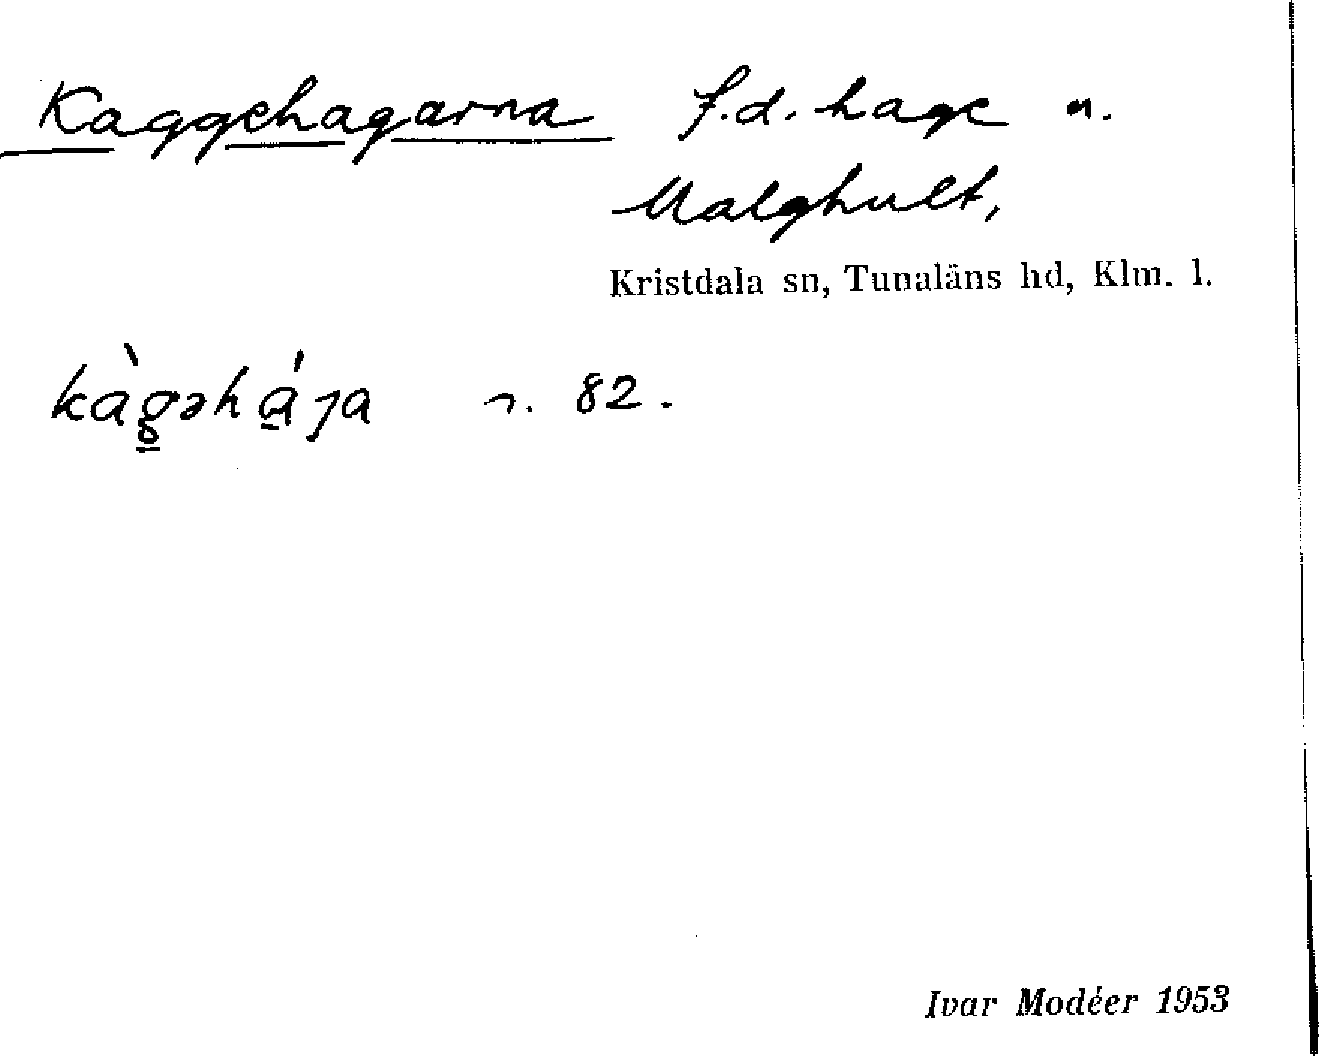 Kaggehagarna f.d. hage n.
Malghult,
Kristdala sn, Tunaläns hd, Klm. l.
kàgəhája n. 82.
Ivar Modéer 1953